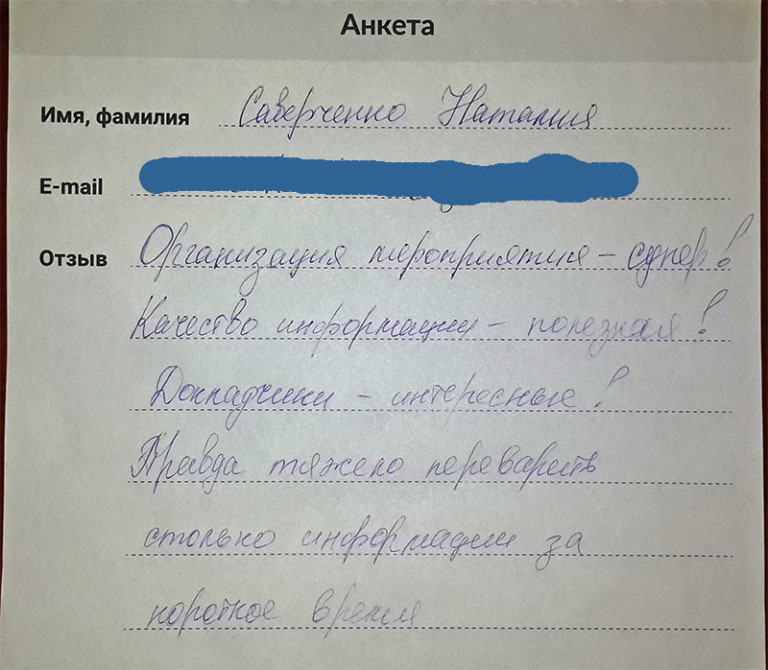 Анкета
Имя, фамилия Саверченко Наталия
E-mail
Отзыв Организация мероприятия – супер!
Качество информации – полезная!
Докладчики – интересные!
Правда тяжело переварить
столько информации за
короткое время